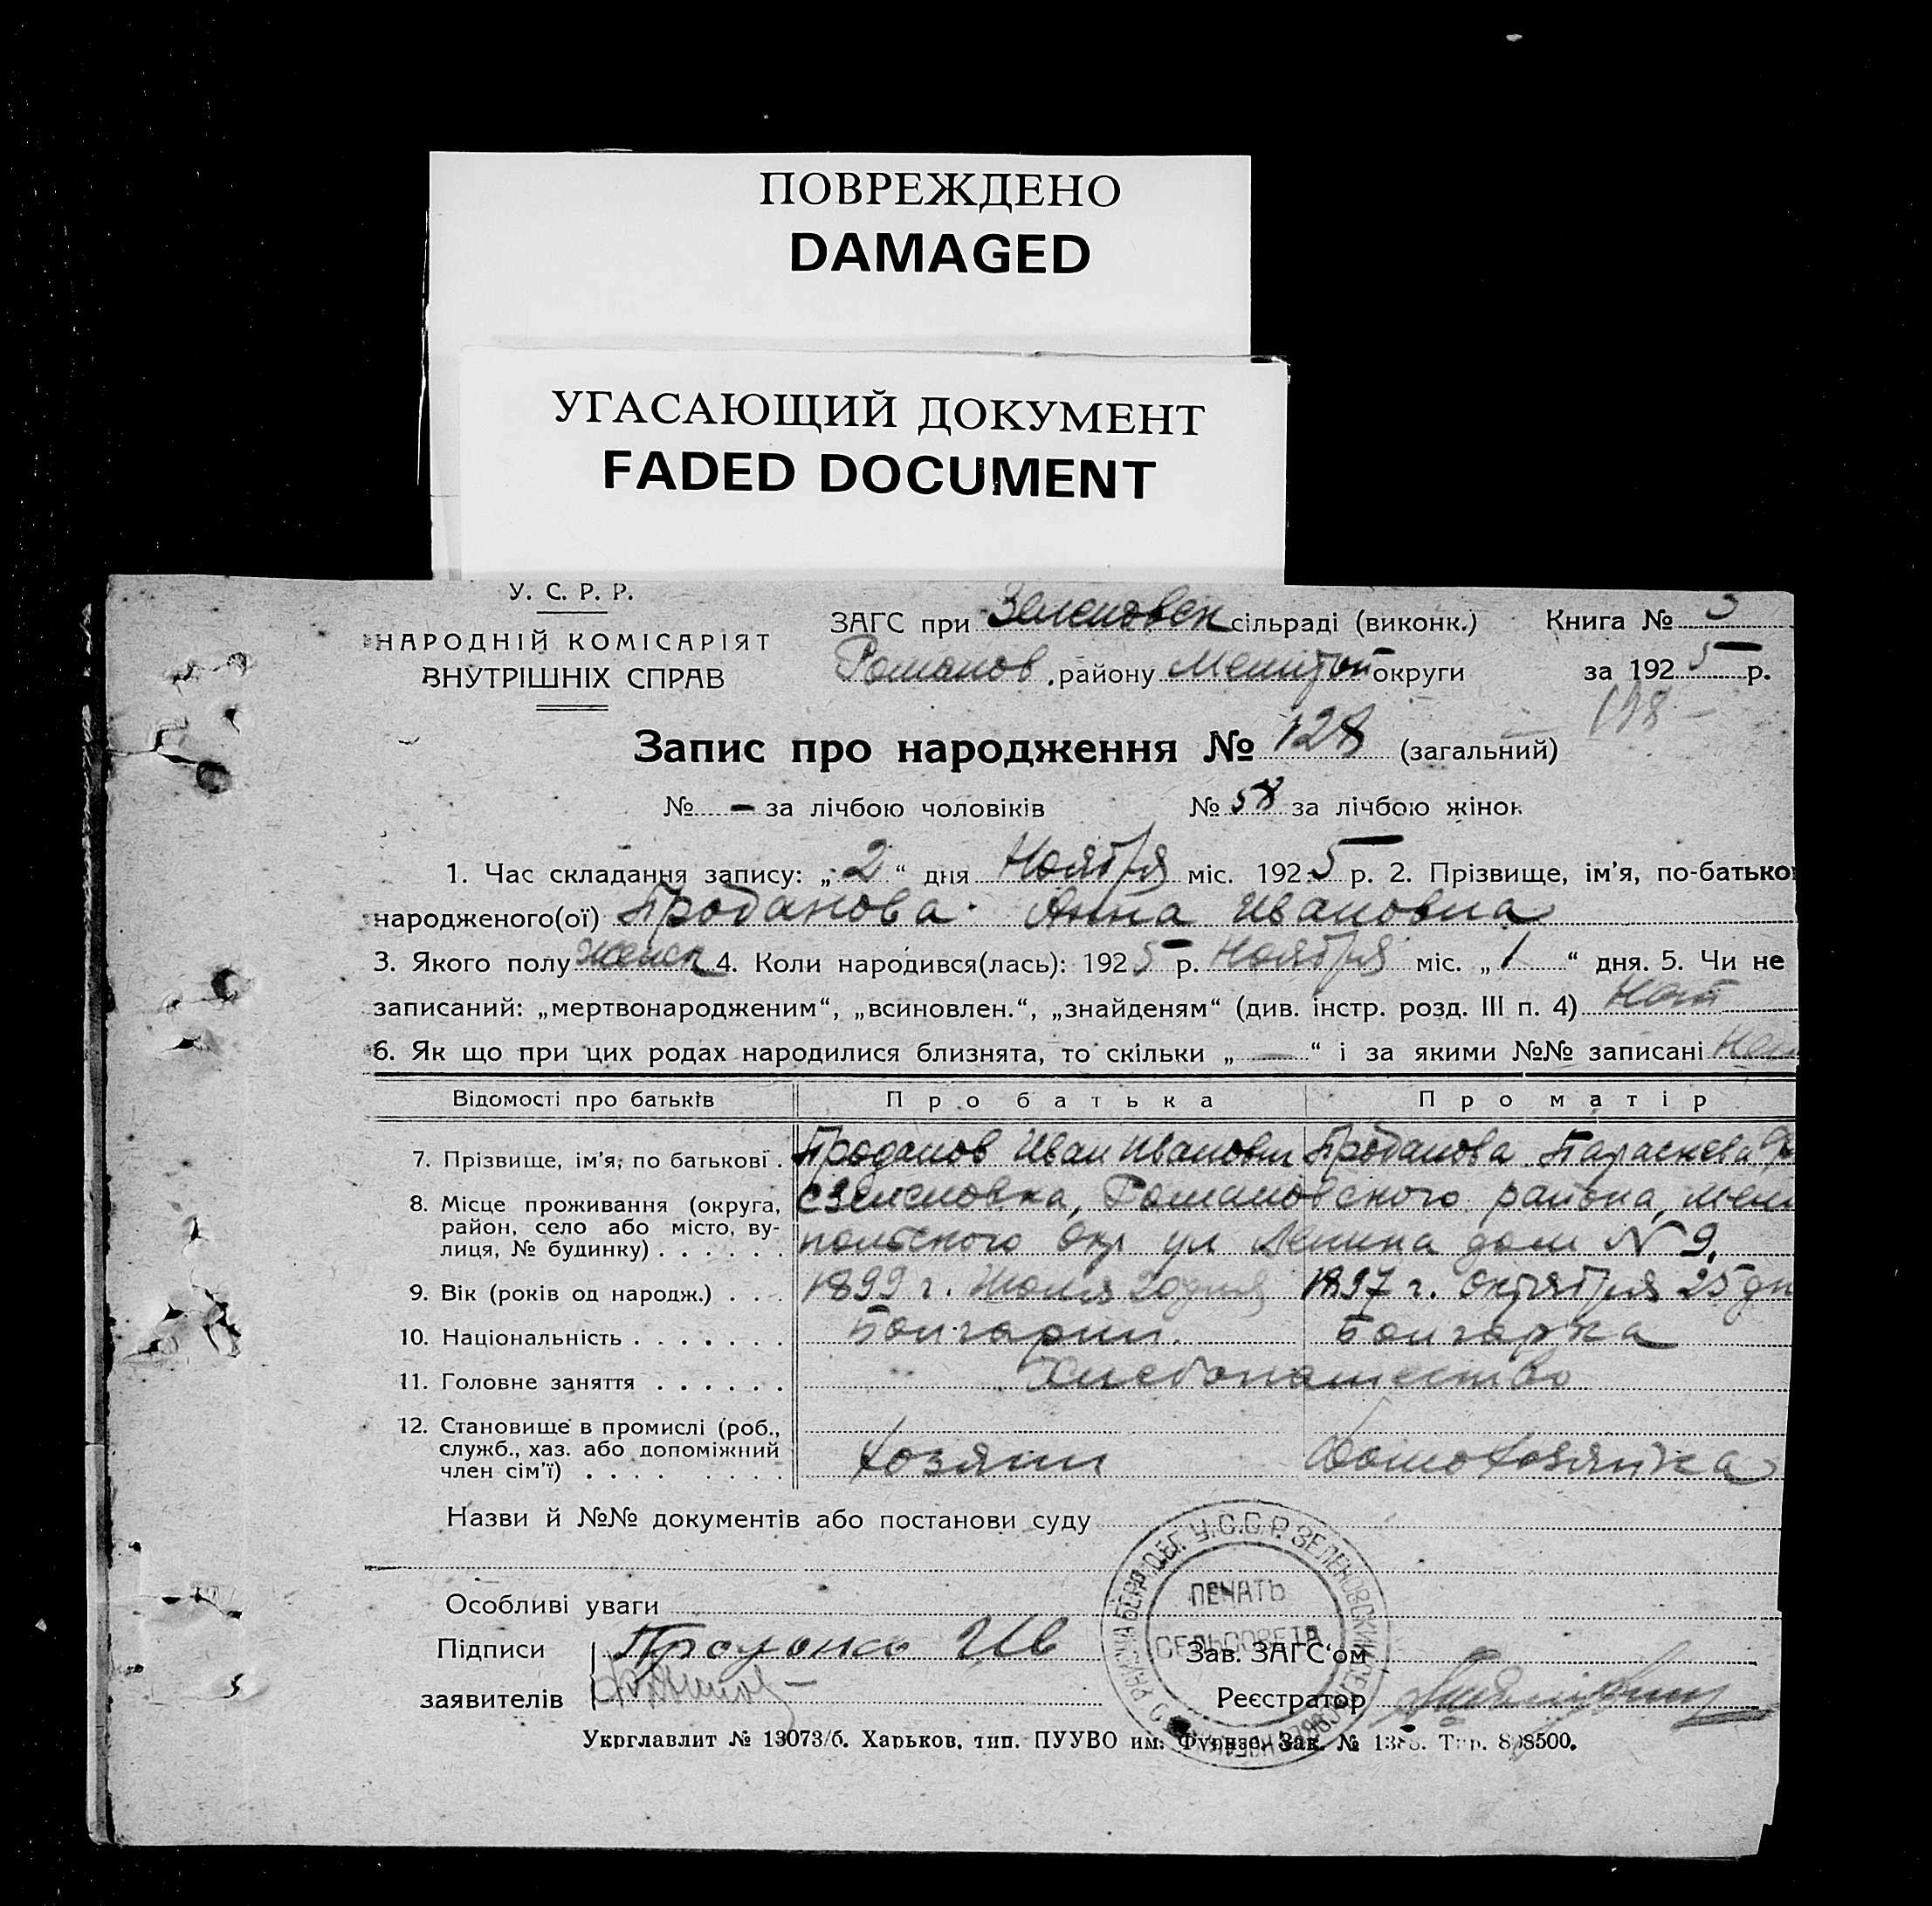 ПОВРЕЖДЕНО
DAMAGED
УГАСАЮЩИЙ ДОКУМЕНТ
FADED DOCUMENT
У. С. Р. Р.
НАРОДНІЙ КОМІСАРІЯТ
ВНУТРІШНІХ СПРАВ
ЗАГС при Зеленовск сільраді (виконк.) Книга № 3
Романов. району Мелитоп округи за 1925 р.
198
Запис про народження № 128 (загальний)
№ - за лічбою чоловіків № 58 за лічбою жінок
1. Час складання запису: „2“ дня Ноября міс. 1925 р. 2. Прізвище, ім’я, по-батько
народженого(ої) Проданова Анна Ивановна
3. Якого полу женск 4. Коли народився(лась): 1925 р. Ноября міс. „1“ дня. 5. Чи не
записаний: „мертвонародженим“, „всиновлен.“, „знайденям“ (див. інстр. розд. III п. 4) Нет
6. Як що при цих родах народилися близнята, то скільки „—“ і за якими №№ записані Нет
Відомості про батьків Про батька Про матір
7. Прізвище, ім’я, по батькові. Проданов Иван Иванович Проданова Параскева
8. Місце проживання (округа, район, село або місто, вулиця, № будинку) с Зеленовка, Романовского района, Мели
польского Окр ул Ленина дом № 9.
9. Вік (років од народж.) . . . 1899 г. Июля 20 дня 1897 г. Октября 25 дн
10. Національність . . . . . . . Болгарин. Болгарка
11. Головне заняття . . . . . . Хлебопашество
12. Становище в промислі (роб.,
служб., хаз. або допоміжний
член сім’ї) . . . . . . . . Хозяин Домохозяйка
Назви й №№ документів або постанови суду
Особливі уваги
Підписи Проданов Ив Зав. ЗАГС‘ом
заявителів Реєстратор
У.С.С.Р. ЗЕЛЕНОВСКИЙ
ПЕЧАТЬ
СЕЛЬСОВЕТА
Укрглавлит № 13073/б. Харьков, тип. ПУУВО им. Фрунзе. Зак. №